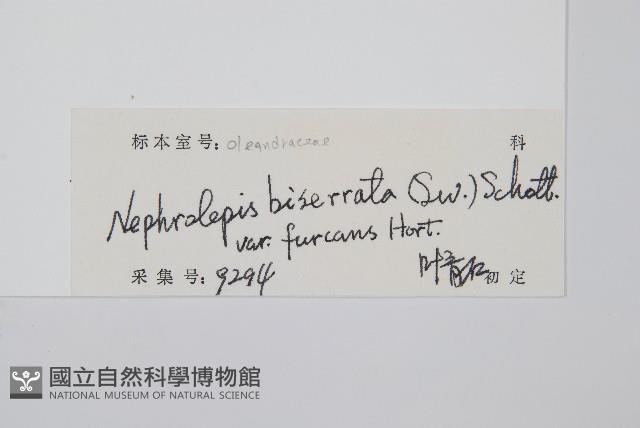 标本室号: Oleandraceae 科
Nephrolepis biserrata (Sw.) Schott.
var. furcans Hort.
采集号: 9294 叶育石 初定
國立自然科學博物館
NATIONAL MUSEUM OF NATURAL SCIENCE